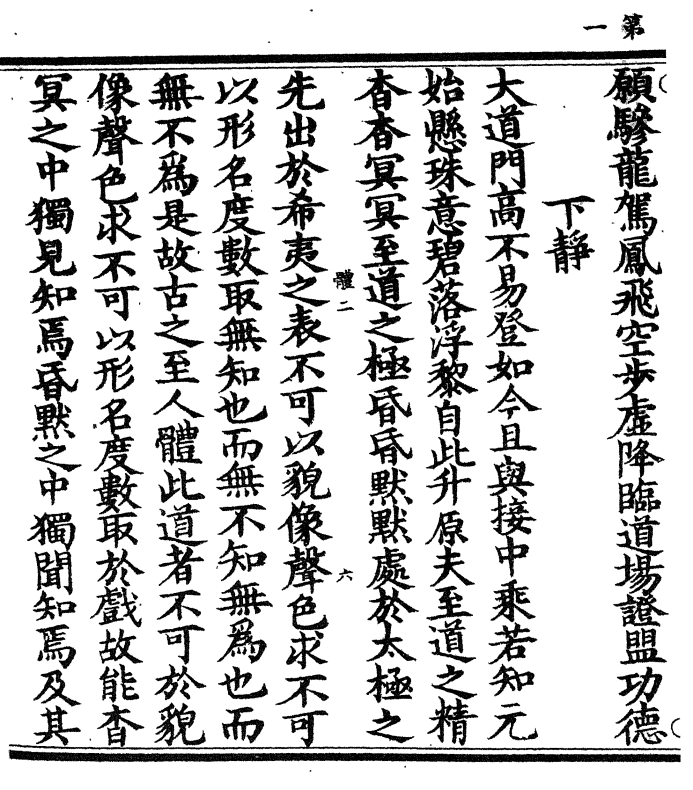 第一
願驂龍駕鳳飛空步虛降臨道場證盟功德
下靜
大道門高不易登如今且與接中乘若知元
始懸珠意碧落浮黎自此升原夫至道之精
杳杳冥冥至道之極昏昏默默處於太極之
體二 六
先出於希夷之表不可以貌像聲色求不可
以形名度數取無知也而無不知無爲也而
無不爲是故古之至人體此道者不可於貌
像聲色求不可以形名度數取於戲故能杳
冥之中獨見知焉昏默之中獨聞知焉及其